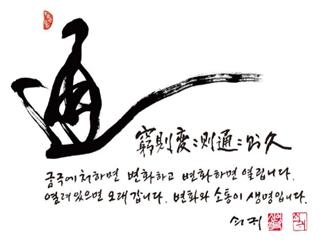 通
窮則變〻則通〻則久
궁극에 처하면 변화하고 변화하면 열립니다.
열려있으면 오래 갑니다. 변화와 소통이 생명입니다.